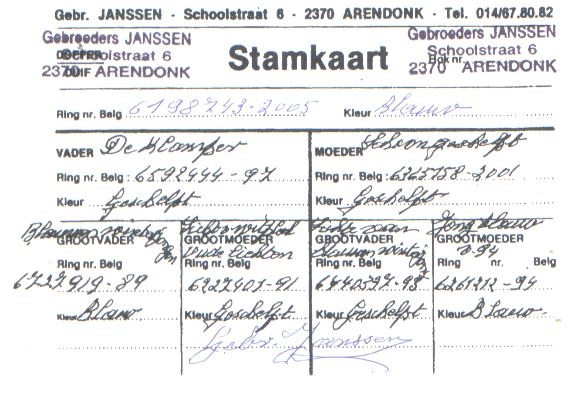 Gebr. JANSSEN - Schoolstraat 6 - 2370 ARENDONK - Tel. 014/67.80.82
Gebroeders JANSSEN
Schoolstraat 6
2370 ARENDONK
Stamkaart
Gebroeders JANSSEN
Schoolstraat 6
2370 ARENDONK
Hok nr.
Ring nr. Belg 6198743-2005 Kleur Blauw
VADER De Klamper MOEDER Schoon geschelpt
Ring nr. Belg : 6592444-97 Ring nr. Belg : 6265158-2001
Kleur Geschelpt Kleur Geschelpt
GROOTVADER GROOTMOEDER GROOTVADER GROOTMOEDER
Ring nr. Belg Ring nr. Belg Ring nr. Belg Ring nr. Belg
6727919-89 6227401-91 6440527-93 6261212-94
Kleur Blauw Kleur Geschelpt Kleur Geschelpt Kleur Blauw
Gebr. Janssen